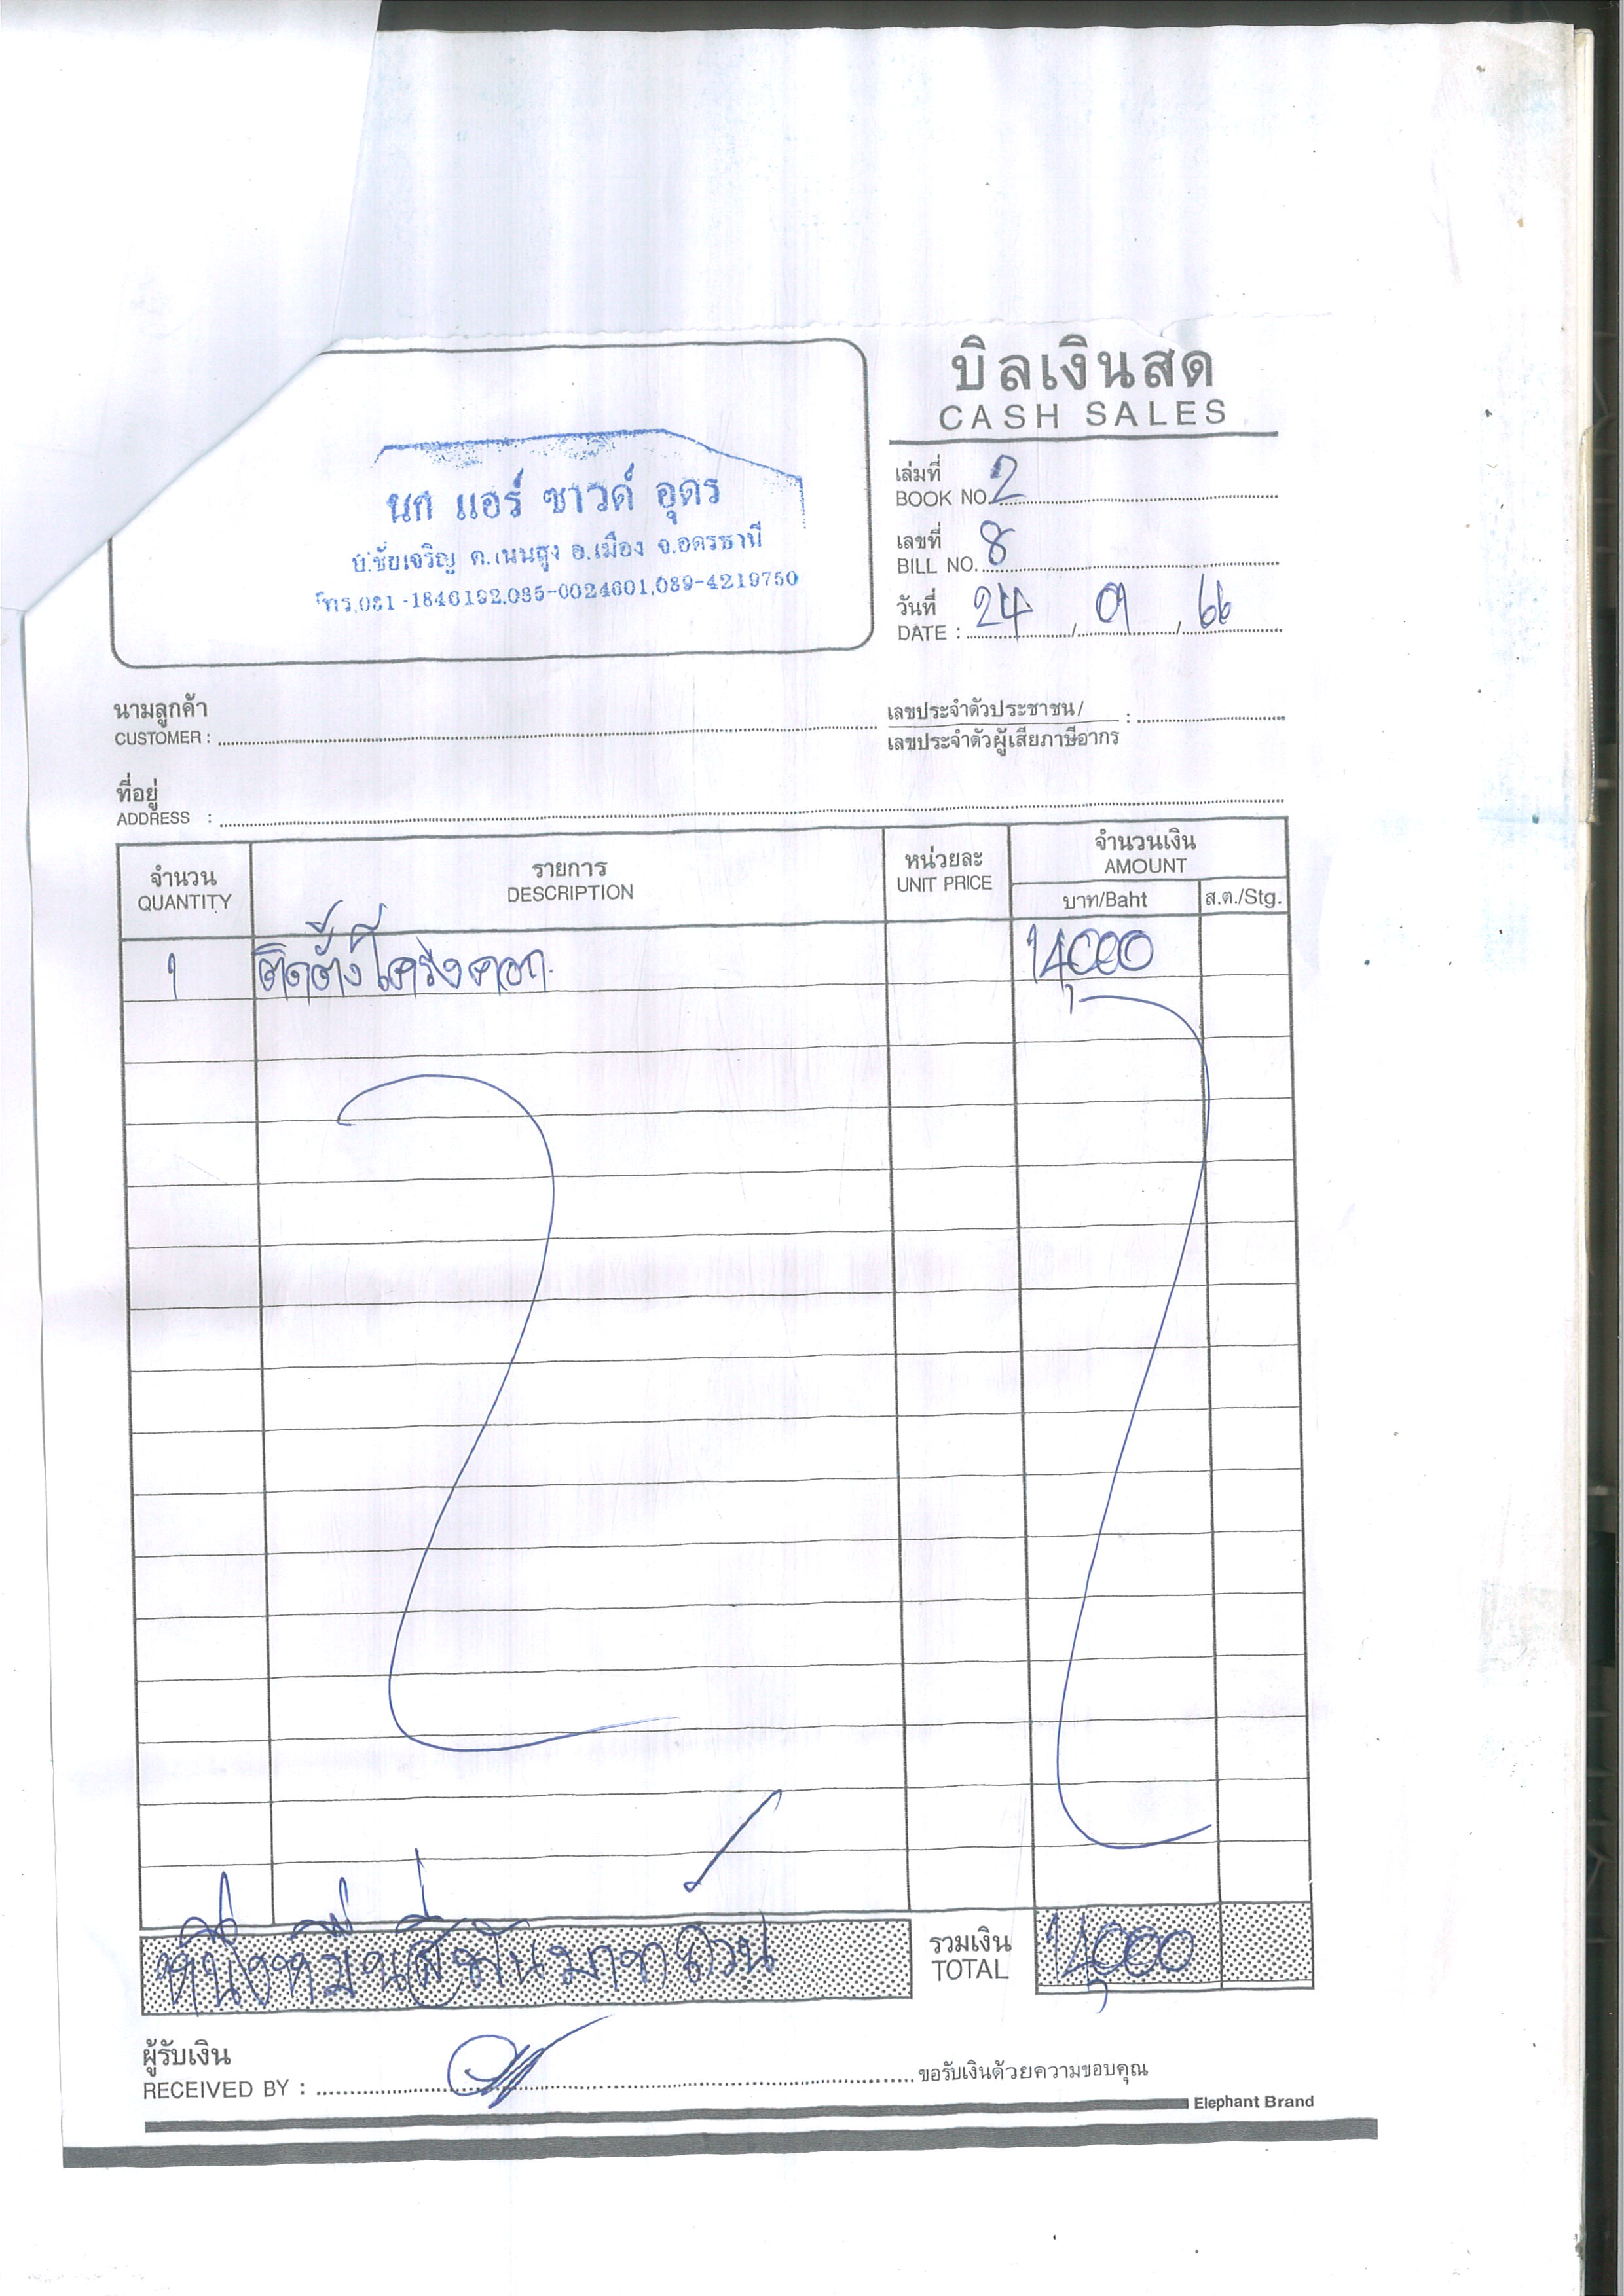 บิลเงินสด
CASH SALES
นก แอร์ ซาวด์ อุดร
บ.ชัยเจริญ ต.เนนสูง อ.เมือง จ.อดรธานี
โทร.081-1846192,085-0024601,089-4219750
เล่มที่
BOOK NO. 2
เลขที่
BILL NO. 8
วันที่
DATE : 24 / 09 / 66
นามลูกค้า
CUSTOMER :
เลขประจำตัวประชาชน/ :
เลขประจำตัวผู้เสียภาษีอากร
ที่อยู่
ADDRESS :
จำนวน รายการ หน่วยละ จำนวนเงิน
QUANTITY DESCRIPTION UNIT PRICE AMOUNT
บาท/Baht ส.ต./Stg.
1 ติดตั้ง 14,000
หนึ่งหมื่นสี่พันบาทถ้วน
รวมเงิน
TOTAL 14,000
ผู้รับเงิน
RECEIVED BY : ขอรับเงินด้วยความขอบคุณ
Elephant Brand